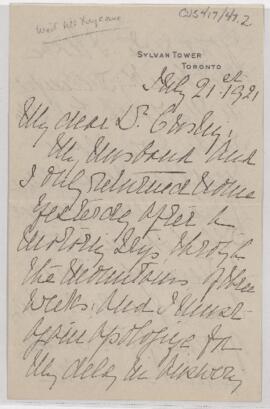 CUS417/47.2
SYLVAN TOWER
TORONTO
July 21st 1921
My dear Dr
My Husband and
I only returned home
yesterday after a
motoring trip through
the mountains of three
weeks: and I must
again apologize for
my delay in